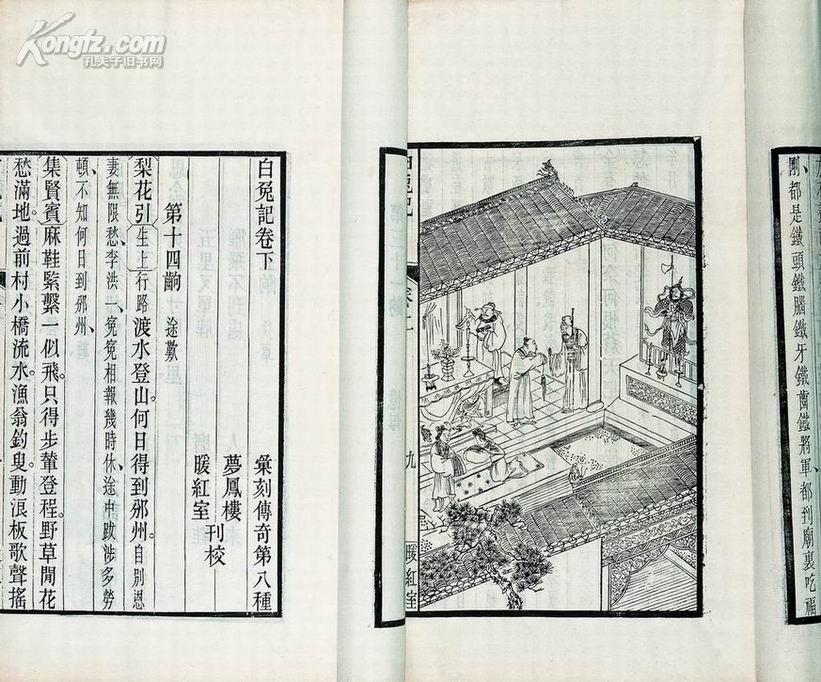 Kongfz.com
孔夫子旧书网
剛、都是鐵頭鐵腦鐵牙鐵齒鐵將軍都到廟裏吃福
九
暖紅室
白兔記卷下
彙刻傳奇第八種
夢鳳樓
暖紅室
刊校
第十四齣 途歎
梨花引 生上 行路渡水登山。何日得到邠州。自別恩
妻無限愁、李洪一、寃寃相報幾時休、途中跋涉多勞
頓、不知何日到邠州、
集賢賓麻鞋緊繫一似飛。只得步輦登程。野草閒花
愁滿地。過前村小橋流水。漁翁釣叟。動浪板歌聲搖